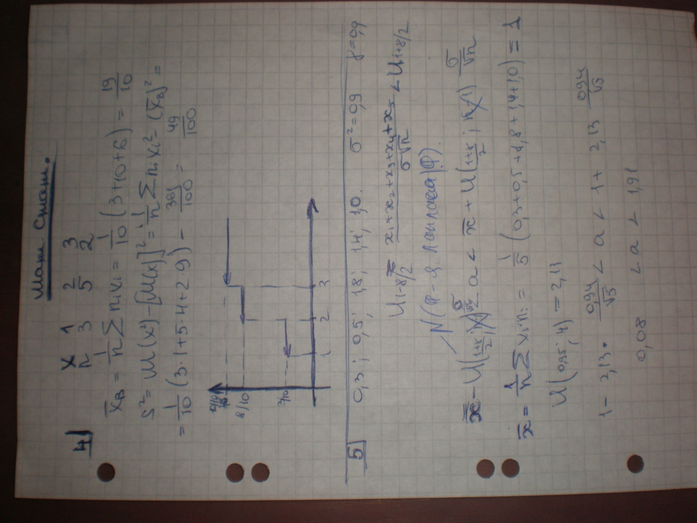 Мат. Стат.
4) X 1 2 3
n 3 5 2
x̄_B = 1/n ∑ n_i x_i = 1/10 (3+10+6) = 19/10
S² = M(x²) - [M(x)]² = 1/n ∑ n_i x_i² - (x̄_B)² =
= 1/10 (3·1+5·4+2·9) - 361/100 = 49/100
8/10
3/10
1 2 3
5) 0,3; 0,5; 1,8; 1,4; 1,0. σ²=0,9 γ=0,9
U 1-γ/2 < x₁+x₂+x₃+x₄+x₅ / σ√n < U 1+γ/2
N (Ф-я Лапласа |Ф).
x̄ - U(1+γ/2; n-1) σ/√n < a < x̄ + U(1+γ/2; n-1) σ/√n
x̄ = 1/n ∑ x_i n_i = 1/5 (0,3+0,5+1,8+1,4+1,0) = 1
U(0,95; 4) = 2,13
1 - 2,13 · 0,94/√5 < a < 1 + 2,13 0,94/√5
0,08 < a < 1,91